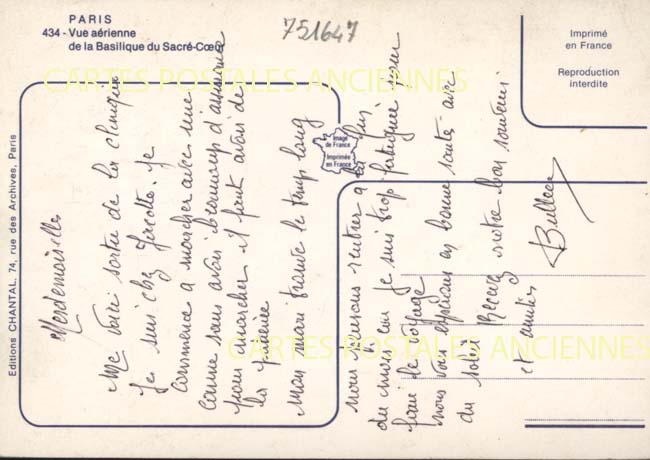 PARIS
434 - Vue aérienne
de la Basilique du Sacré-Cœur
751647
Imprimé
en France
Reproduction
interdite
CARTES POSTALES ANCIENNES
Editions CHANTAL, 74, rue des Archives, Paris
Image
de France
Imprimée
en France
Mesdemoiselles
Me voici sortie de la clinique
Je suis chez Je
commence a marcher avec une
canne sans avoir beaucoup d'assurance
pour marcher il faut avoir de
la
mon mari trouve le temps long
nous pensons rentrer a la fin
du mois car Je suis trop fatiguée pour
faire le voyage
nous vous espérons en bonne santé avec
du soleil Recevez notre bon souvenir
et amitiés
CARTES POSTALES ANCIENNES